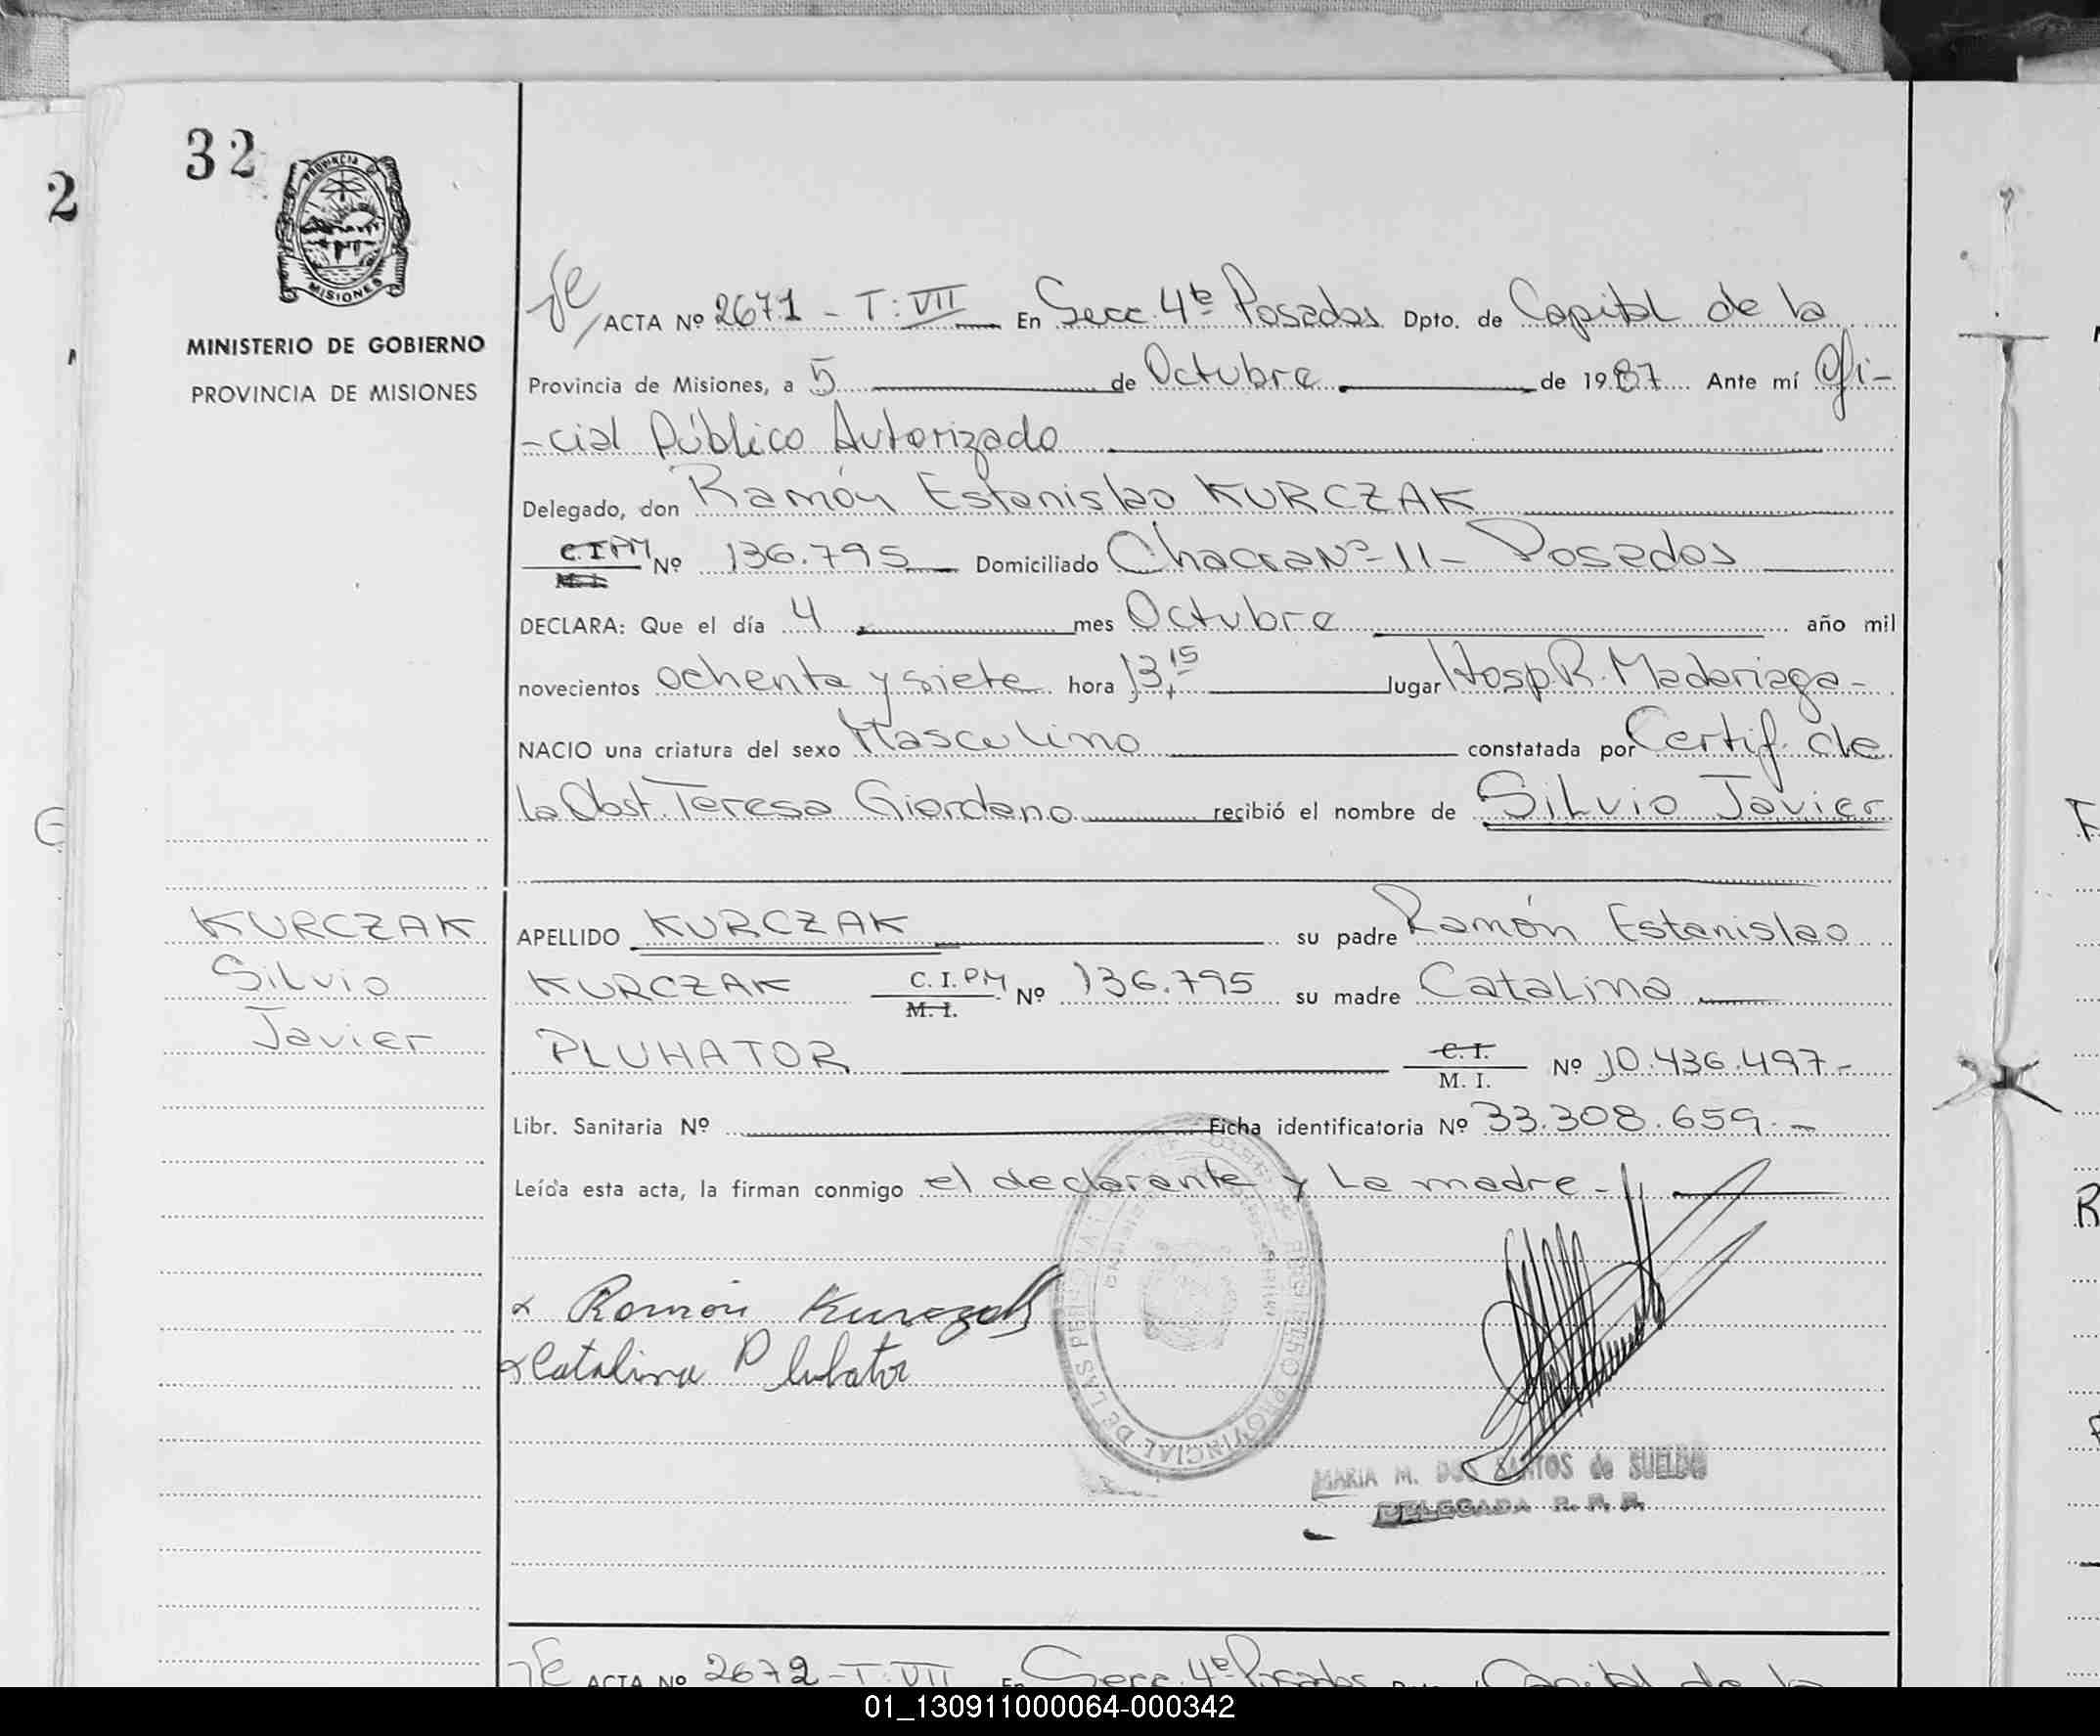 32
2
PROVINCIA DE
MISIONES
MINISTERIO DE GOBIERNO
PROVINCIA DE MISIONES
ACTA Nº 2671 - T: VII En Secc. 4ta Posadas Dpto. de Capital de la
Provincia de Misiones, a 5 de Octubre de 1987 Ante mí Ofi-
-cial Público Autorizado
Delegado, don Ramón Estanislao KURCZAK
C.I.PM Nº 136.795 Domiciliado Chacra Nº 11 - Posadas
M. I.
DECLARA: Que el día 4 mes Octubre año mil
novecientos ochenta y siete hora 13,15 lugar Hosp. R. Madariaga -
NACIO una criatura del sexo Masculino constatada por Certif. de
la Obst. Teresa Giordano recibió el nombre de Silvio Javier
KURCZAK
Silvio
Javier
APELLIDO KURCZAK su padre Ramón Estanislao
KURCZAK C.I.PM Nº 136.795 su madre Catalina
M. I.
PLUHATOR C. I. Nº 10.436.497-
M. I.
Libr. Sanitaria Nº Ficha identificatoria Nº 33.308.659.-
Leída esta acta, la firman conmigo el declarante y la madre -
x Ramón Kurczak
x Catalina Pluhator
REGISTRO PROVINCIAL DE LAS PERSONAS
MARIA M. DOS SANTOS de SUELDO
DELEGADA R. P. P.
ACTA Nº 2672 - T: VII En Secc. 4ta Posadas Capital de la
01_130911000064-000342